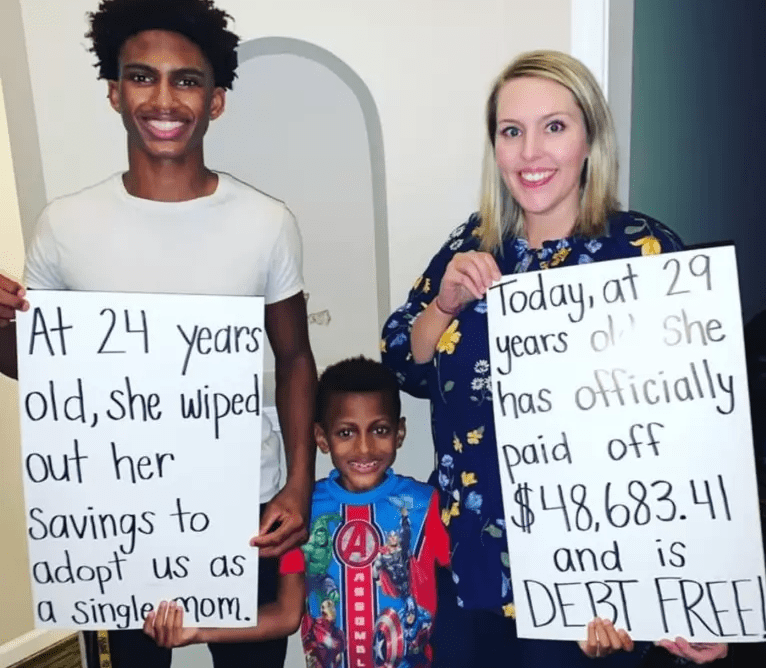 At 24 years
old, she wiped
out her
Savings to
adopt us as
a single mom.
Today, at 29
years old she
has officially
paid off
$48,683.41
and is
DEBT FREE!
A
ASSEMBL